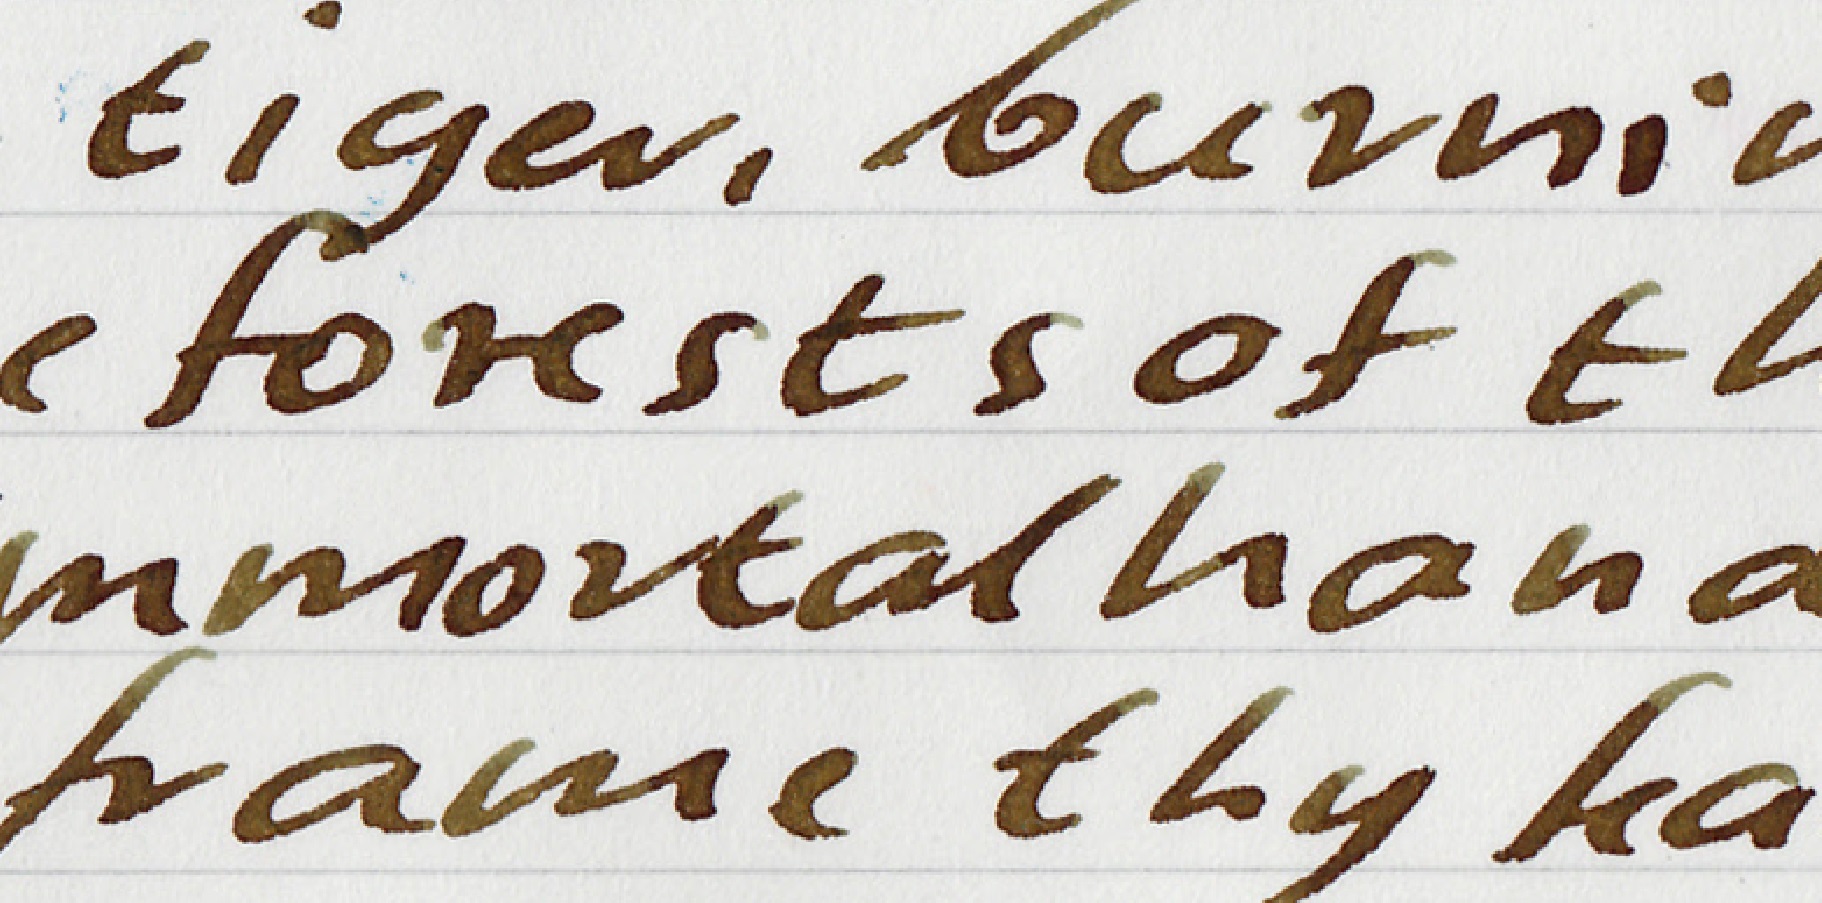 tiger, burnin
e forests of th
mmortal hand
frame thy ha